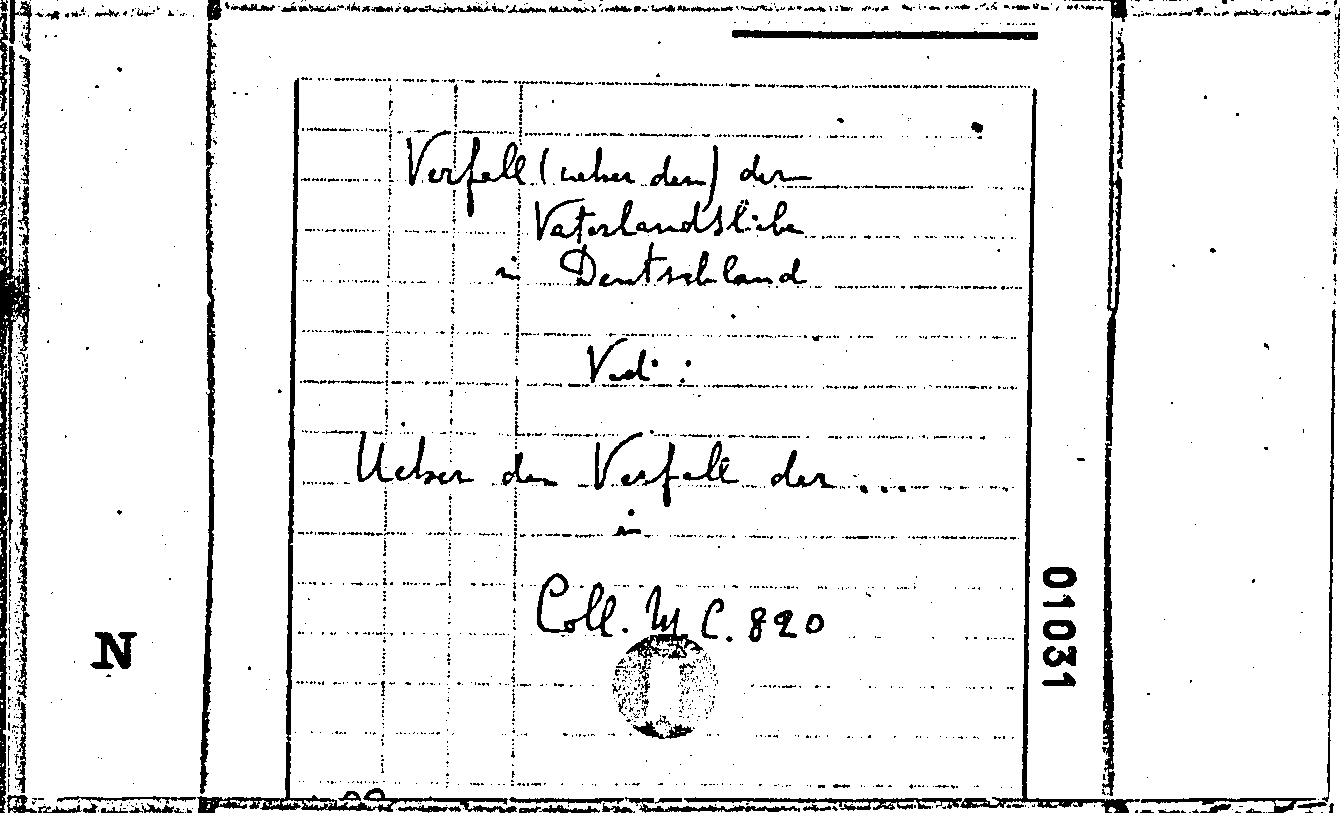 Verfall (ueber den) der
Vaterlandsliebe
in Deutschland
Vid. :
Ueber den Verfall der ...
in
Coll. M C. 820
N
01031